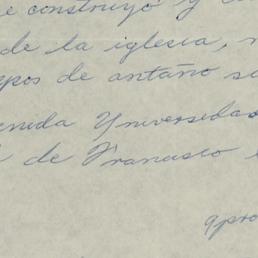 e construyó y
de la iglesia,
pos de antaño
enida Universidad
de Francisco
apro